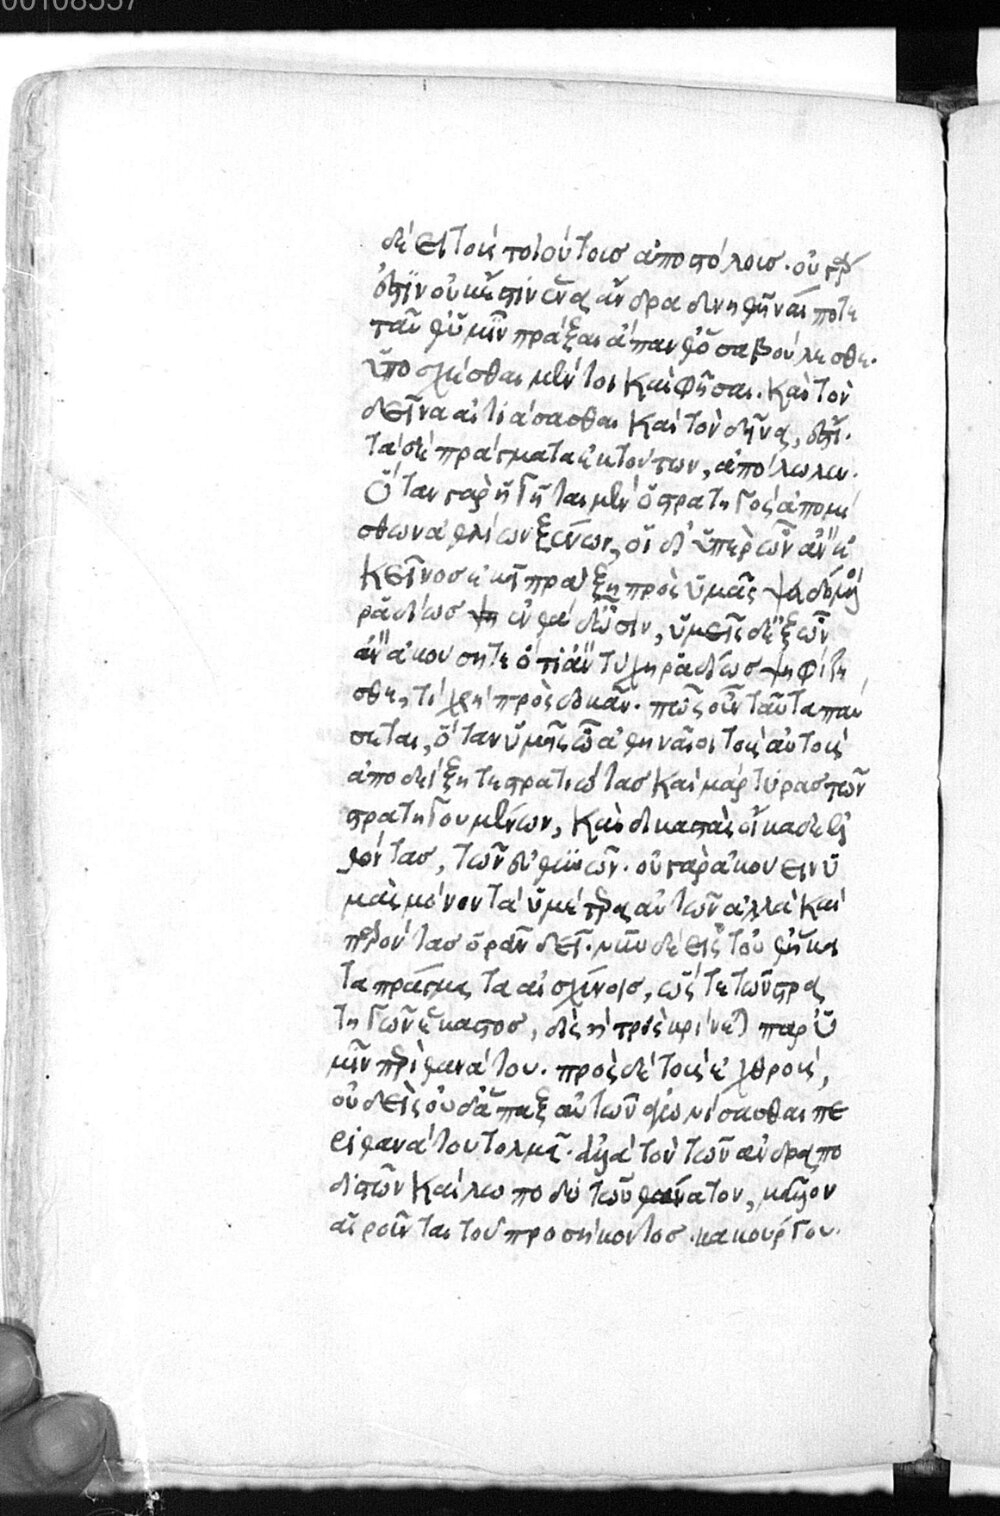 00108557
δὲ ἐπὶ τοῖς τοιούτοις ἀποστόλοις. οὐ γὰρ
ἔστιν οὐκ ἔστιν ἕνα ἄνδρα δυνηθῆναί ποτε
ταῦθ' ὑμῖν πράξαι ἅπανθ' ὅσα βούλεσθε.
ὑποσχέσθαι μέντοι καὶ φῆσαι. καὶ τὸν
δεῖνα αἰτιάσασθαι καὶ τὸν δεῖνα, ἔστι.
τὰ δὲ πράγματα ἐκ τούτων, ἀπόλωλεν.
Ὅταν γὰρ ἡγῆται μὲν ὁ στρατηγὸς ἀπομί
σθων ἀθλίων ξένων, οἱ δ' ὑπὲρ ὧν ἂν ἐ
κεῖνος ἐκεῖ πράξῃ πρὸς ὑμᾶς ψευδόμενοι
ῥαδίως ἐνθάδ' ὦσιν, ὑμεῖς δ' ἐξ ὧν
ἂν ἀκούσητε ὅτι ἂν τύχητε ῥαδίως ψηφίζη
σθε, τί χρὴ προσδοκᾶν. πῶς οὖν ταῦτα παύ
σεται, ὅταν ὑμεῖς ὦ ἀθηναῖοι τοὺς αὐτοὺς
ἀποδείξητε στρατιώτας καὶ μάρτυρας τῶν
στρατηγουμένων, καὶ δικαστὰς οἴκαδε ἐλ
θόντας, τῶν εὐθυνῶν. οὐ γὰρ ἀκούειν ὑ
μᾶς μόνον τὰ ὑμέτερα αὐτῶν ἀλλὰ καὶ
παρόντας ὁρᾶν δεῖ. νῦν δὲ εἰς τοῦθ' ἥκει
τὰ πράγματα αἰσχύνης, ὥστε τῶν στρα
τηγῶν ἕκαστος, δὶς ἢ τρὶς κρίνεται παρ' ὑ
μῖν περὶ θανάτου. πρὸς δὲ τοὺς ἐχθροὺς,
οὐδεὶς οὐδ' ἅπαξ αὐτῶν ἀγωνίσασθαι πε
ρὶ θανάτου τολμᾷ. ἀλλὰ τὸν τῶν ἀνδραπο
διστῶν καὶ λωποδυτῶν θάνατον, μᾶλλον
αἱροῦνται τοῦ προσήκοντος. κακούργου.